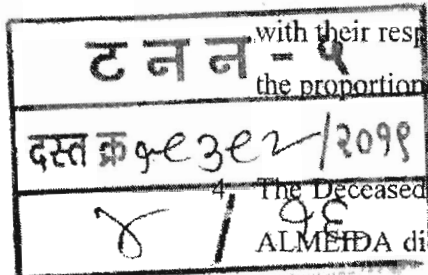 with their resp
ट न न - ५
the proportion
दस्त क्र १९३९२/२०१९
4. The Deceased
४ / १६
ALMEIDA di